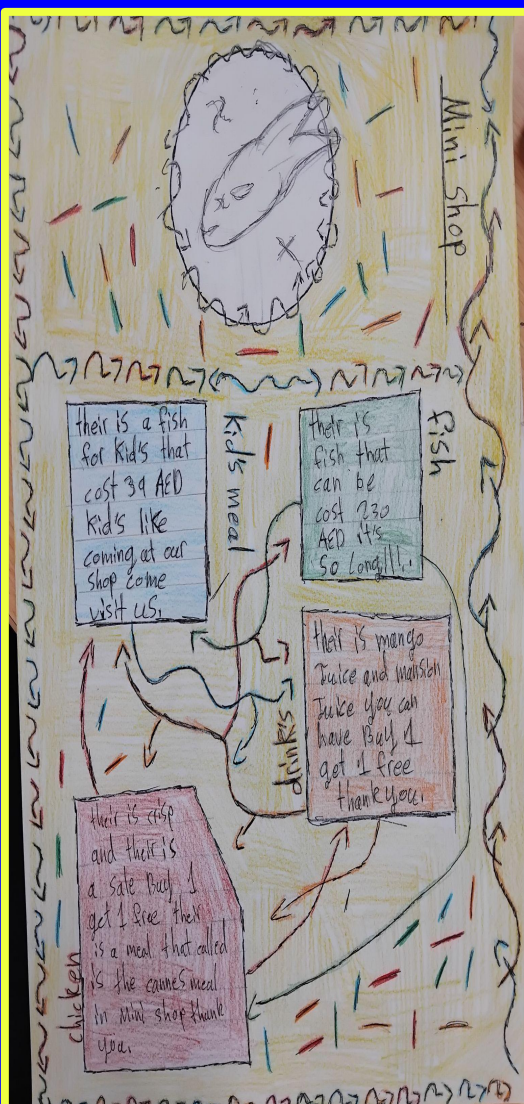 Mini shop
fish
their is
fish that
can be
cost 230
AED it's
so long!!!.
Kid's meal
their is a fish
for Kid's that
cost 39 AED
kid's like
coming at our
shop come
visit us.
drinks
their is mango
Juice and mansion
Juice you can
have Buy 1
get 1 free
thank you.
chicken
their is crisp
and their is
a sale Buy 1
get 1 free their
is a meal that called
is the meal
in Mini shop thank
you.